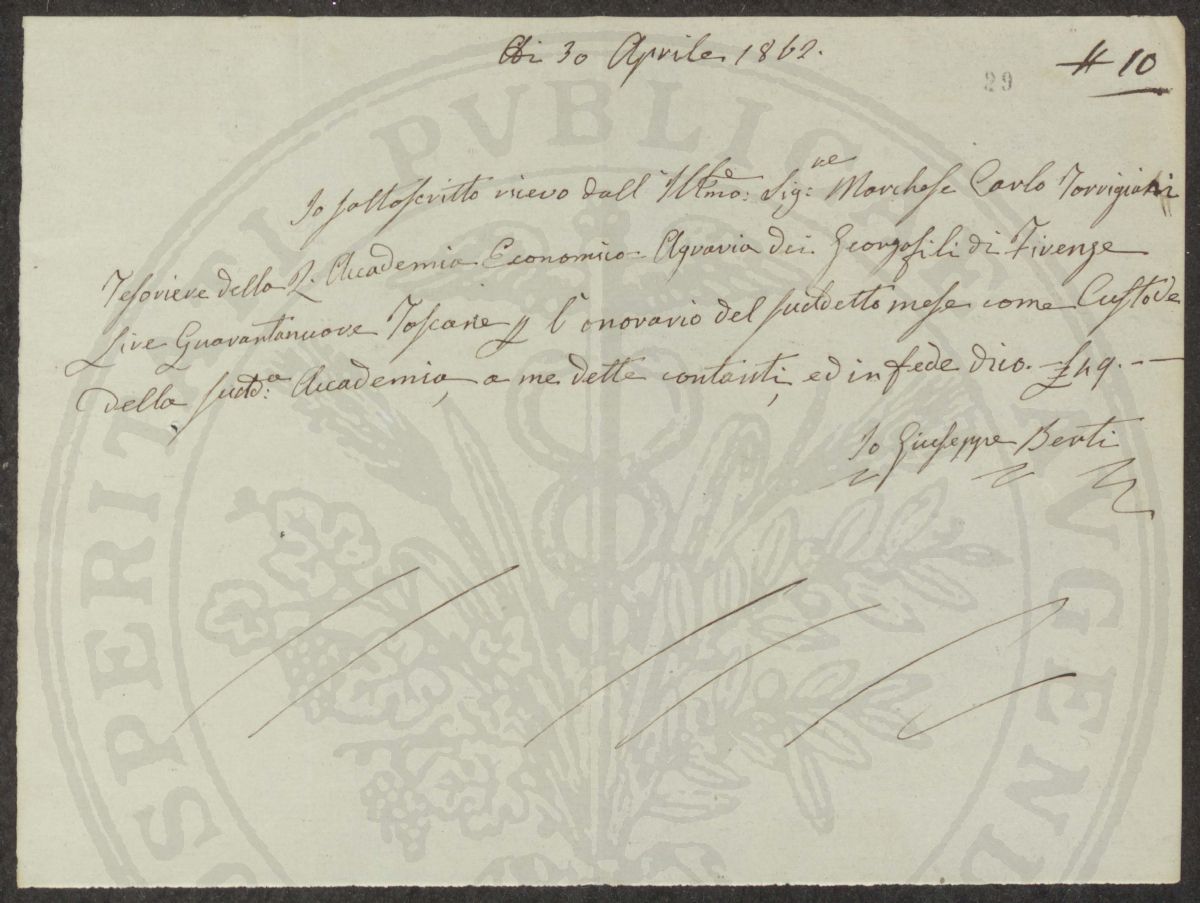 Adi 30 Aprile 1862.
# 10
29
Io sottoscritto ricevo dall' Illmo: Sig:re Marchese Carlo Torrigiani
Tesoriere della R. Accademia Economico-Agraria dei Georgofili di Firenze
Lire Guarantanuove Toscane p l'onorario del suddetto mese come Custode
della sudd:a Accademia, a me dette contanti, ed in fede dico. £ 49. —
Io Giuseppe Berti
PROSPERITATI PVBLICAE AVGENDAE